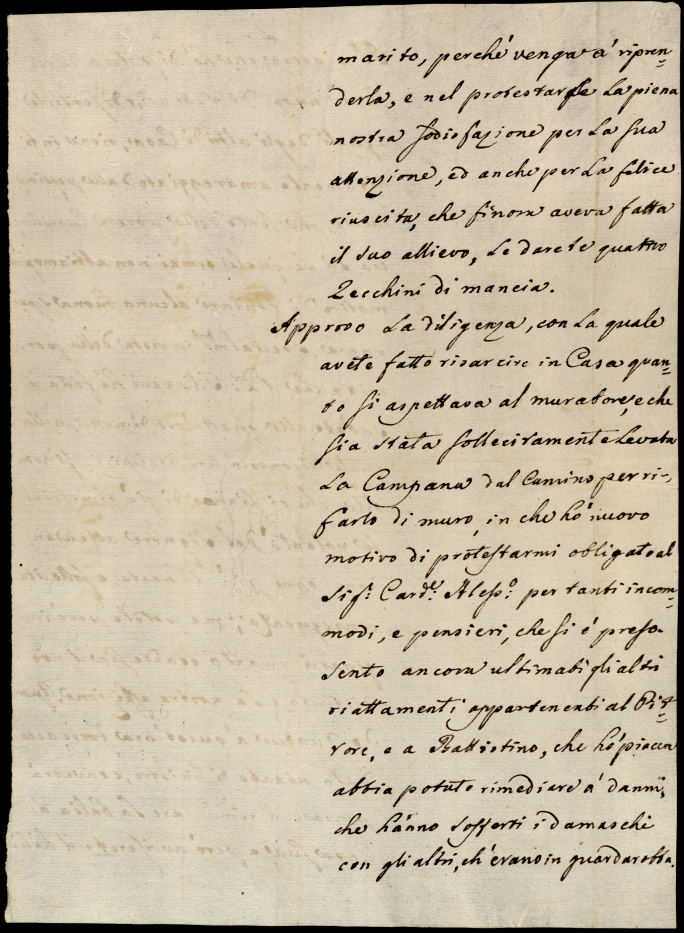 marito, perché venga à ripren=
derla, e nel protestarle la piena
nostra sodisfazione per la sua
attenzione, ed anche per la felice
riuscita, che finora aveva fatta
il suo allievo, le darete quattro
Zecchini di mancia.
Approvo la diligenza, con la quale
avete fatto risarcire in Casa quan=
to si aspettava al muratore, e che
sia stata sollecitamente levata
la Campana dal Camino per ri=
farlo di muro, in che hò nuovo
motivo di protestarmi obligato al
Sig.r Card.le Aless.o per tanti incom=
modi, e pensieri, che si è preso.
Sento ancora ultimati gli altri
riattamenti appartenenti al Pit=
tore, e a Battistino, che hò piacere
abbia potuto rimediare a' danni,
che hanno sofferti i damaschi
con gli altri, ch'erano in guardarobba.